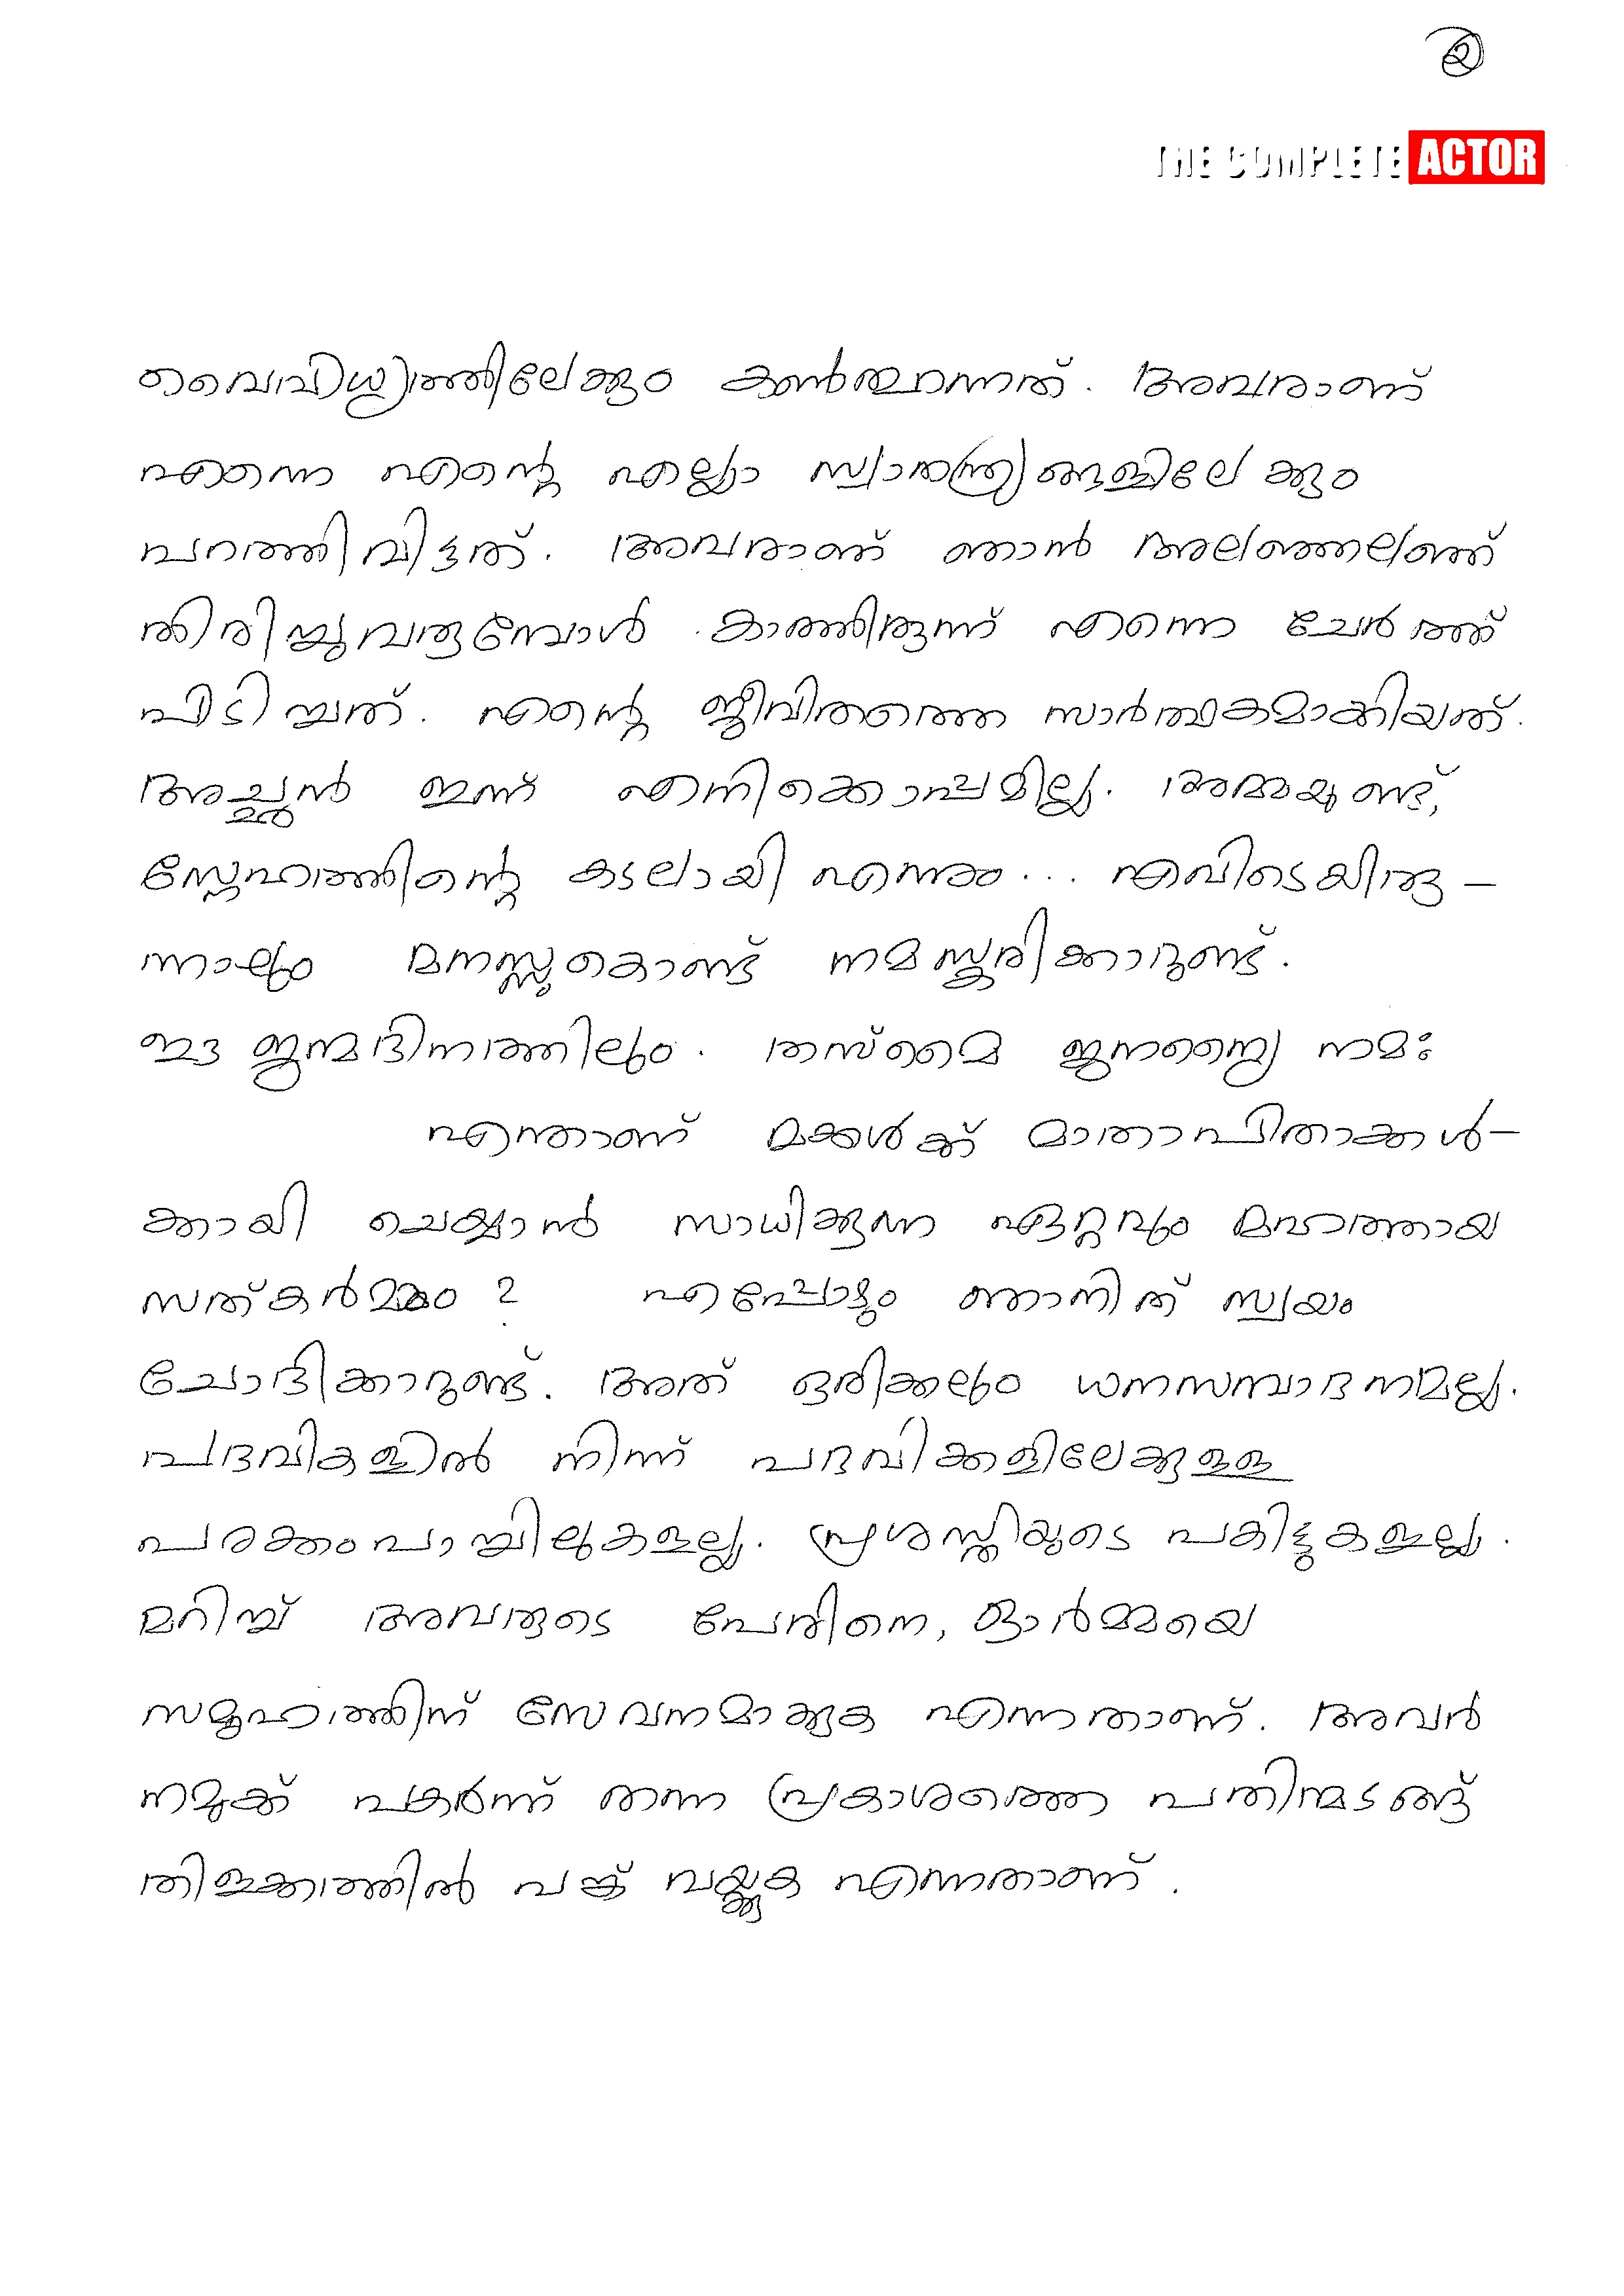 2
THE COMPLETE ACTOR
വൈവിധ്യത്തിലേക്കും കൺതുറന്നത്. അവരാണ്
എന്നെ എന്റെ എല്ലാ സ്വാതന്ത്ര്യങ്ങളിലേക്കും
പറത്തിവിട്ടത്. അവരാണ് ഞാൻ അലഞ്ഞലഞ്ഞ്
തിരിച്ചുവരുമ്പോൾ കാത്തിരുന്ന് എന്നെ ചേർത്ത്
പിടിച്ചത്. എന്റെ ജീവിതത്തെ സാർത്ഥകമാക്കിയത്.
അച്ഛൻ ഇന്ന് എനിക്കൊപ്പമില്ല. അമ്മയുണ്ട്,
സ്നേഹത്തിന്റെ കടലായി എന്നും... എവിടെയിരു–
ന്നാലും മനസ്സുകൊണ്ട് നമസ്കരിക്കാറുണ്ട്.
ഈ ജന്മദിനത്തിലും. തസ്മൈ ജനന്യൈ നമഃ
എന്താണ് മക്കൾക്ക് മാതാപിതാക്കൾ–
ക്കായി ചെയ്യാൻ സാധിക്കുന്ന ഏറ്റവും മഹത്തായ
സത്കർമ്മം? എപ്പോഴും ഞാനിത് സ്വയം
ചോദിക്കാറുണ്ട്. അത് ഒരിക്കലും ധനസമ്പാദനമല്ല.
പദവികളിൽ നിന്ന് പദവിക്കളിലേക്കുള്ള
പരക്കംപാച്ചിലുകളല്ല. പ്രശസ്തിയുടെ പകിട്ടുകളല്ല.
മറിച്ച് അവരുടെ പേരിനെ, ഓർമ്മയെ
സമൂഹത്തിന് സേവനമാക്കുക എന്നതാണ്. അവർ
നമുക്ക് പകർന്ന് തന്ന പ്രകാശത്തെ പതിന്മടങ്ങ്
തിളക്കത്തിൽ പങ്ക് വയ്ക്കുക എന്നതാണ്.